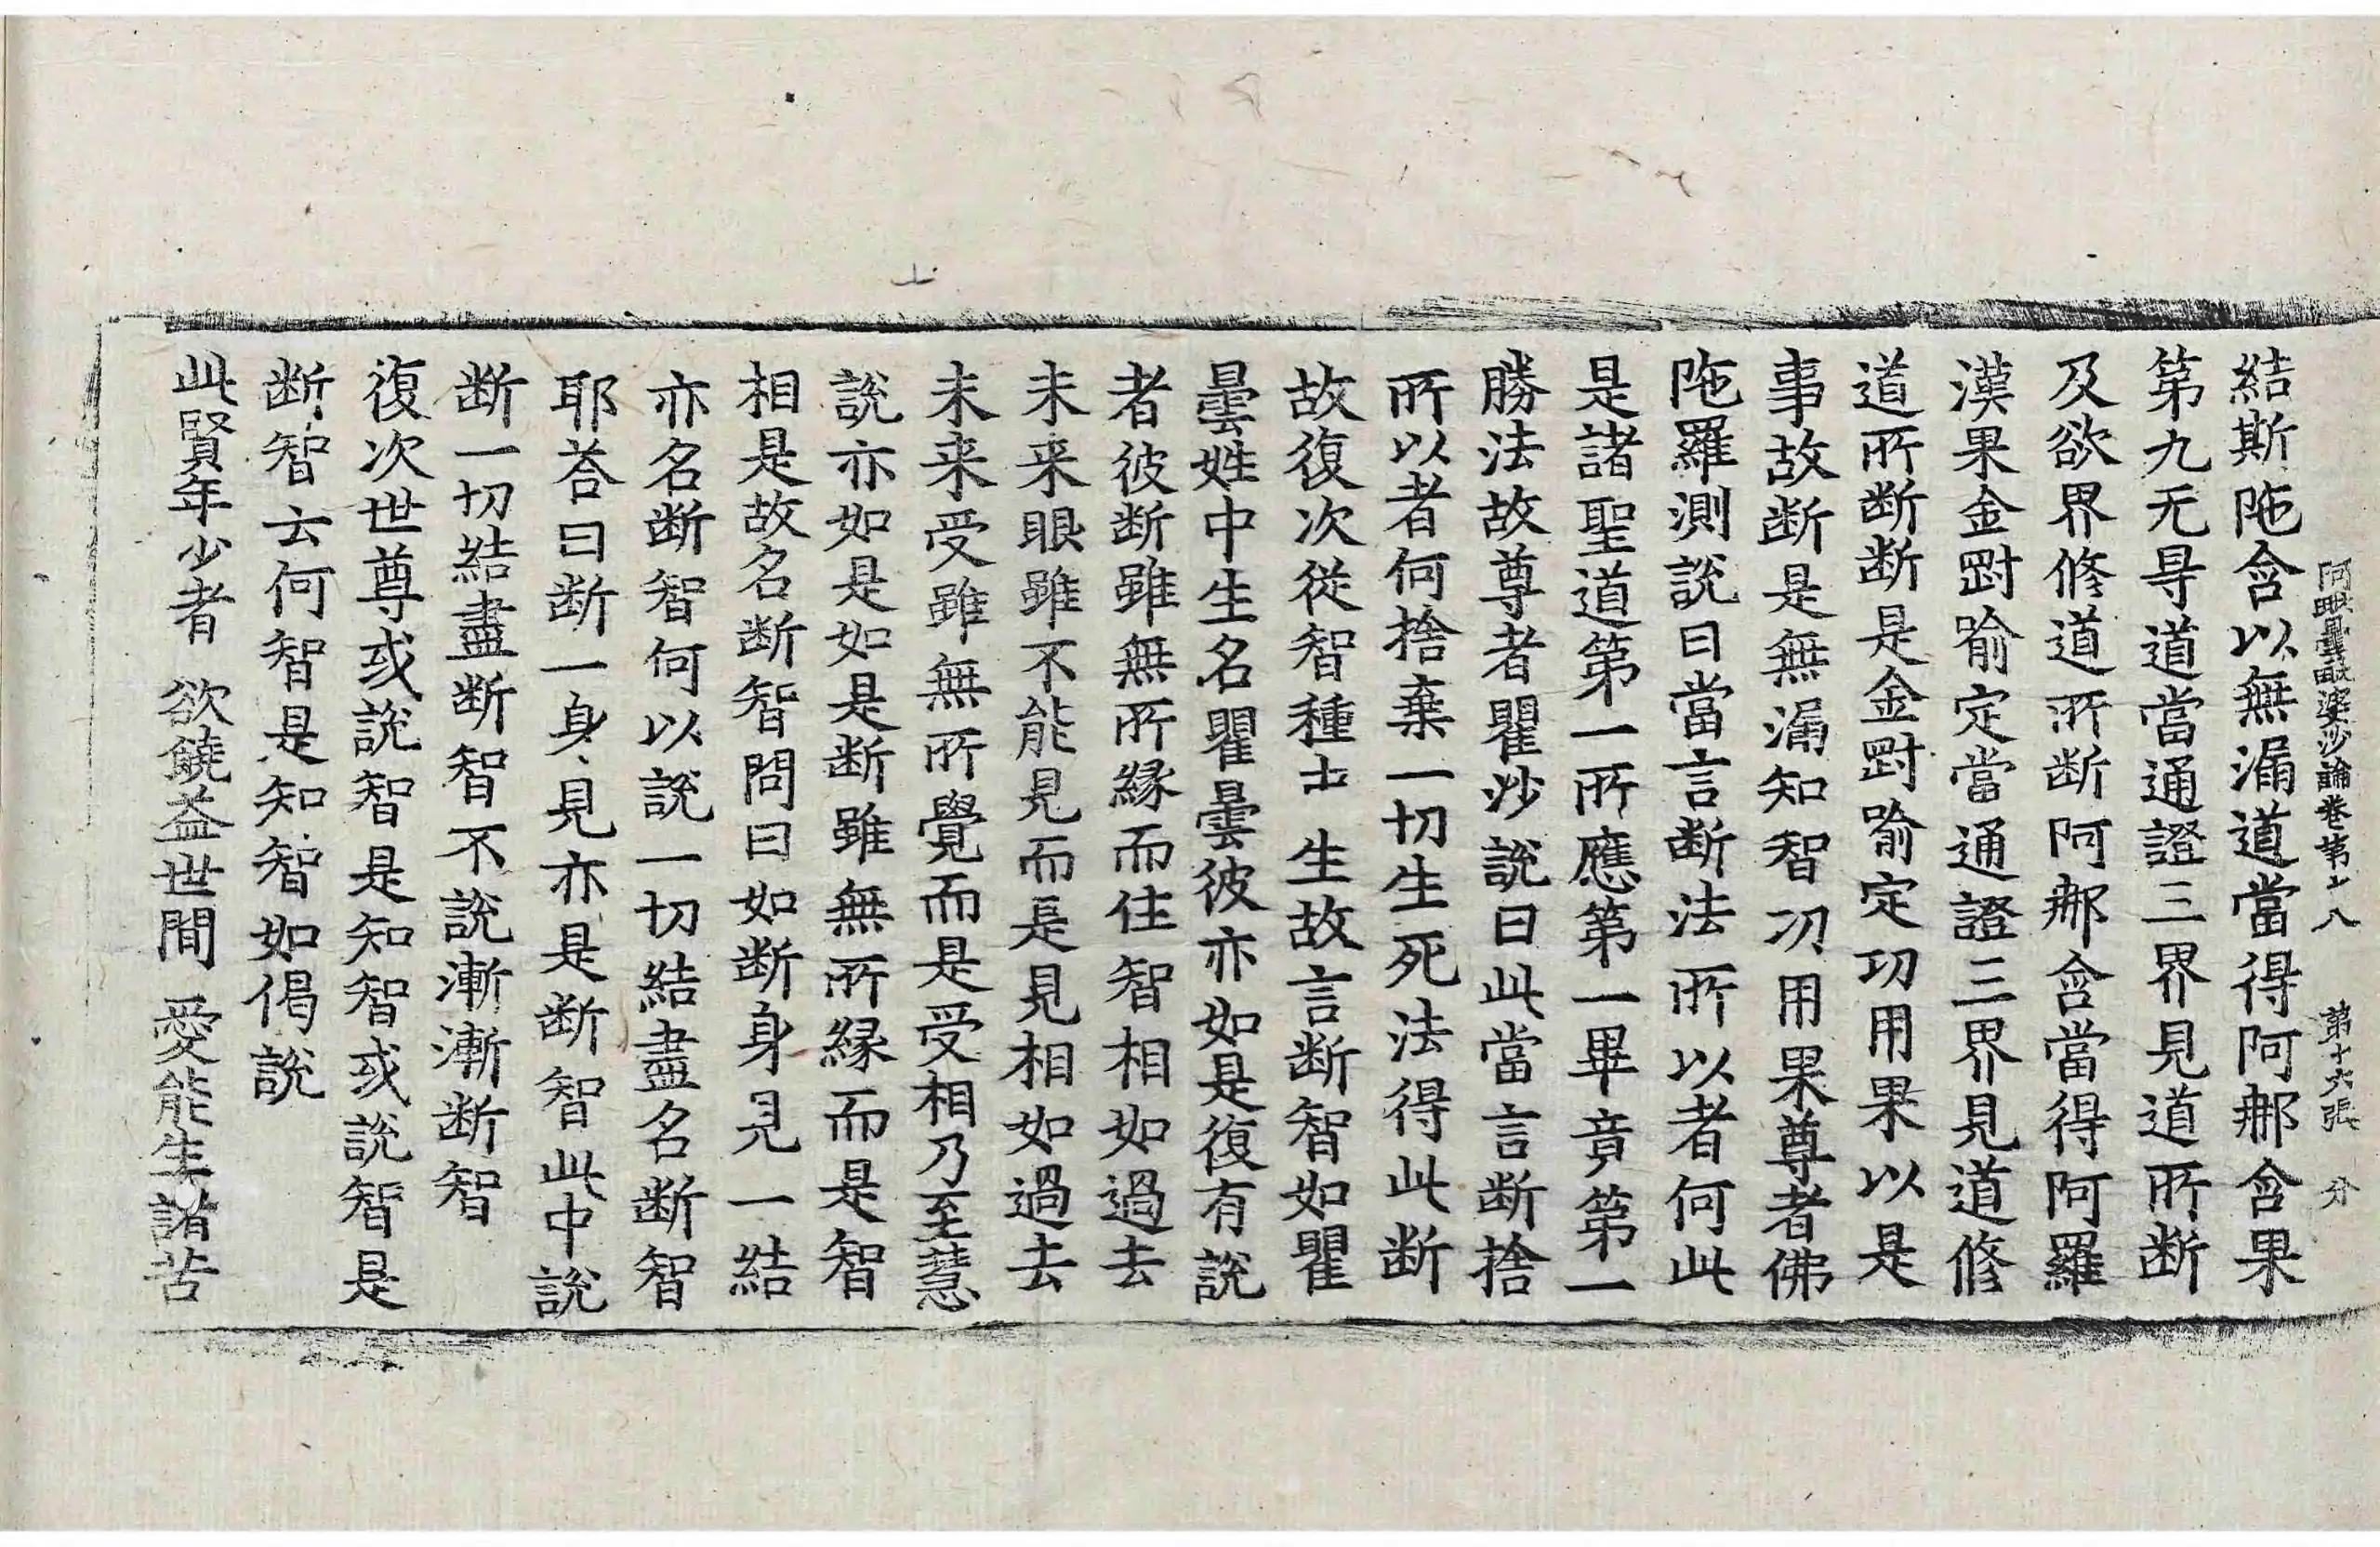 阿毗曇毗婆沙論卷第十八　第十六張　分
結斯陁含以無漏道當得阿郍含果
第九无㝵道當通證三界見道所断
及欲界修道所断阿郍含當得阿羅
漢果金剛喻定當通證三界見道修
道所断断是金剛喻定功用果以是
事故断是無漏知智功用果尊者佛
陁羅測說曰當言断法所以者何此
是諸聖道第一所應第一畢竟第一
勝法故尊者瞿沙說曰此當言断捨
所以者何捨棄一切生死法得此断
故復次從智種中生故言断智如瞿
曇姓中生名瞿曇彼亦如是復有說
者彼断雖無所縁而住智相如過去
未来眼雖不能見而是見相如過去
未来受雖無所覺而是受相乃至慧
說亦如是如是断雖無所縁而是智
相是故名断智問曰如断身見一結
亦名断智何以說一切結盡名断智
耶荅曰断一身見亦是断智此中說
断一切結盡断智不說漸漸断智
復次世尊或說智是知智或說智是
断智云何智是知智如偈說
此賢年少者　欲饒益世間　愛能生諸苦